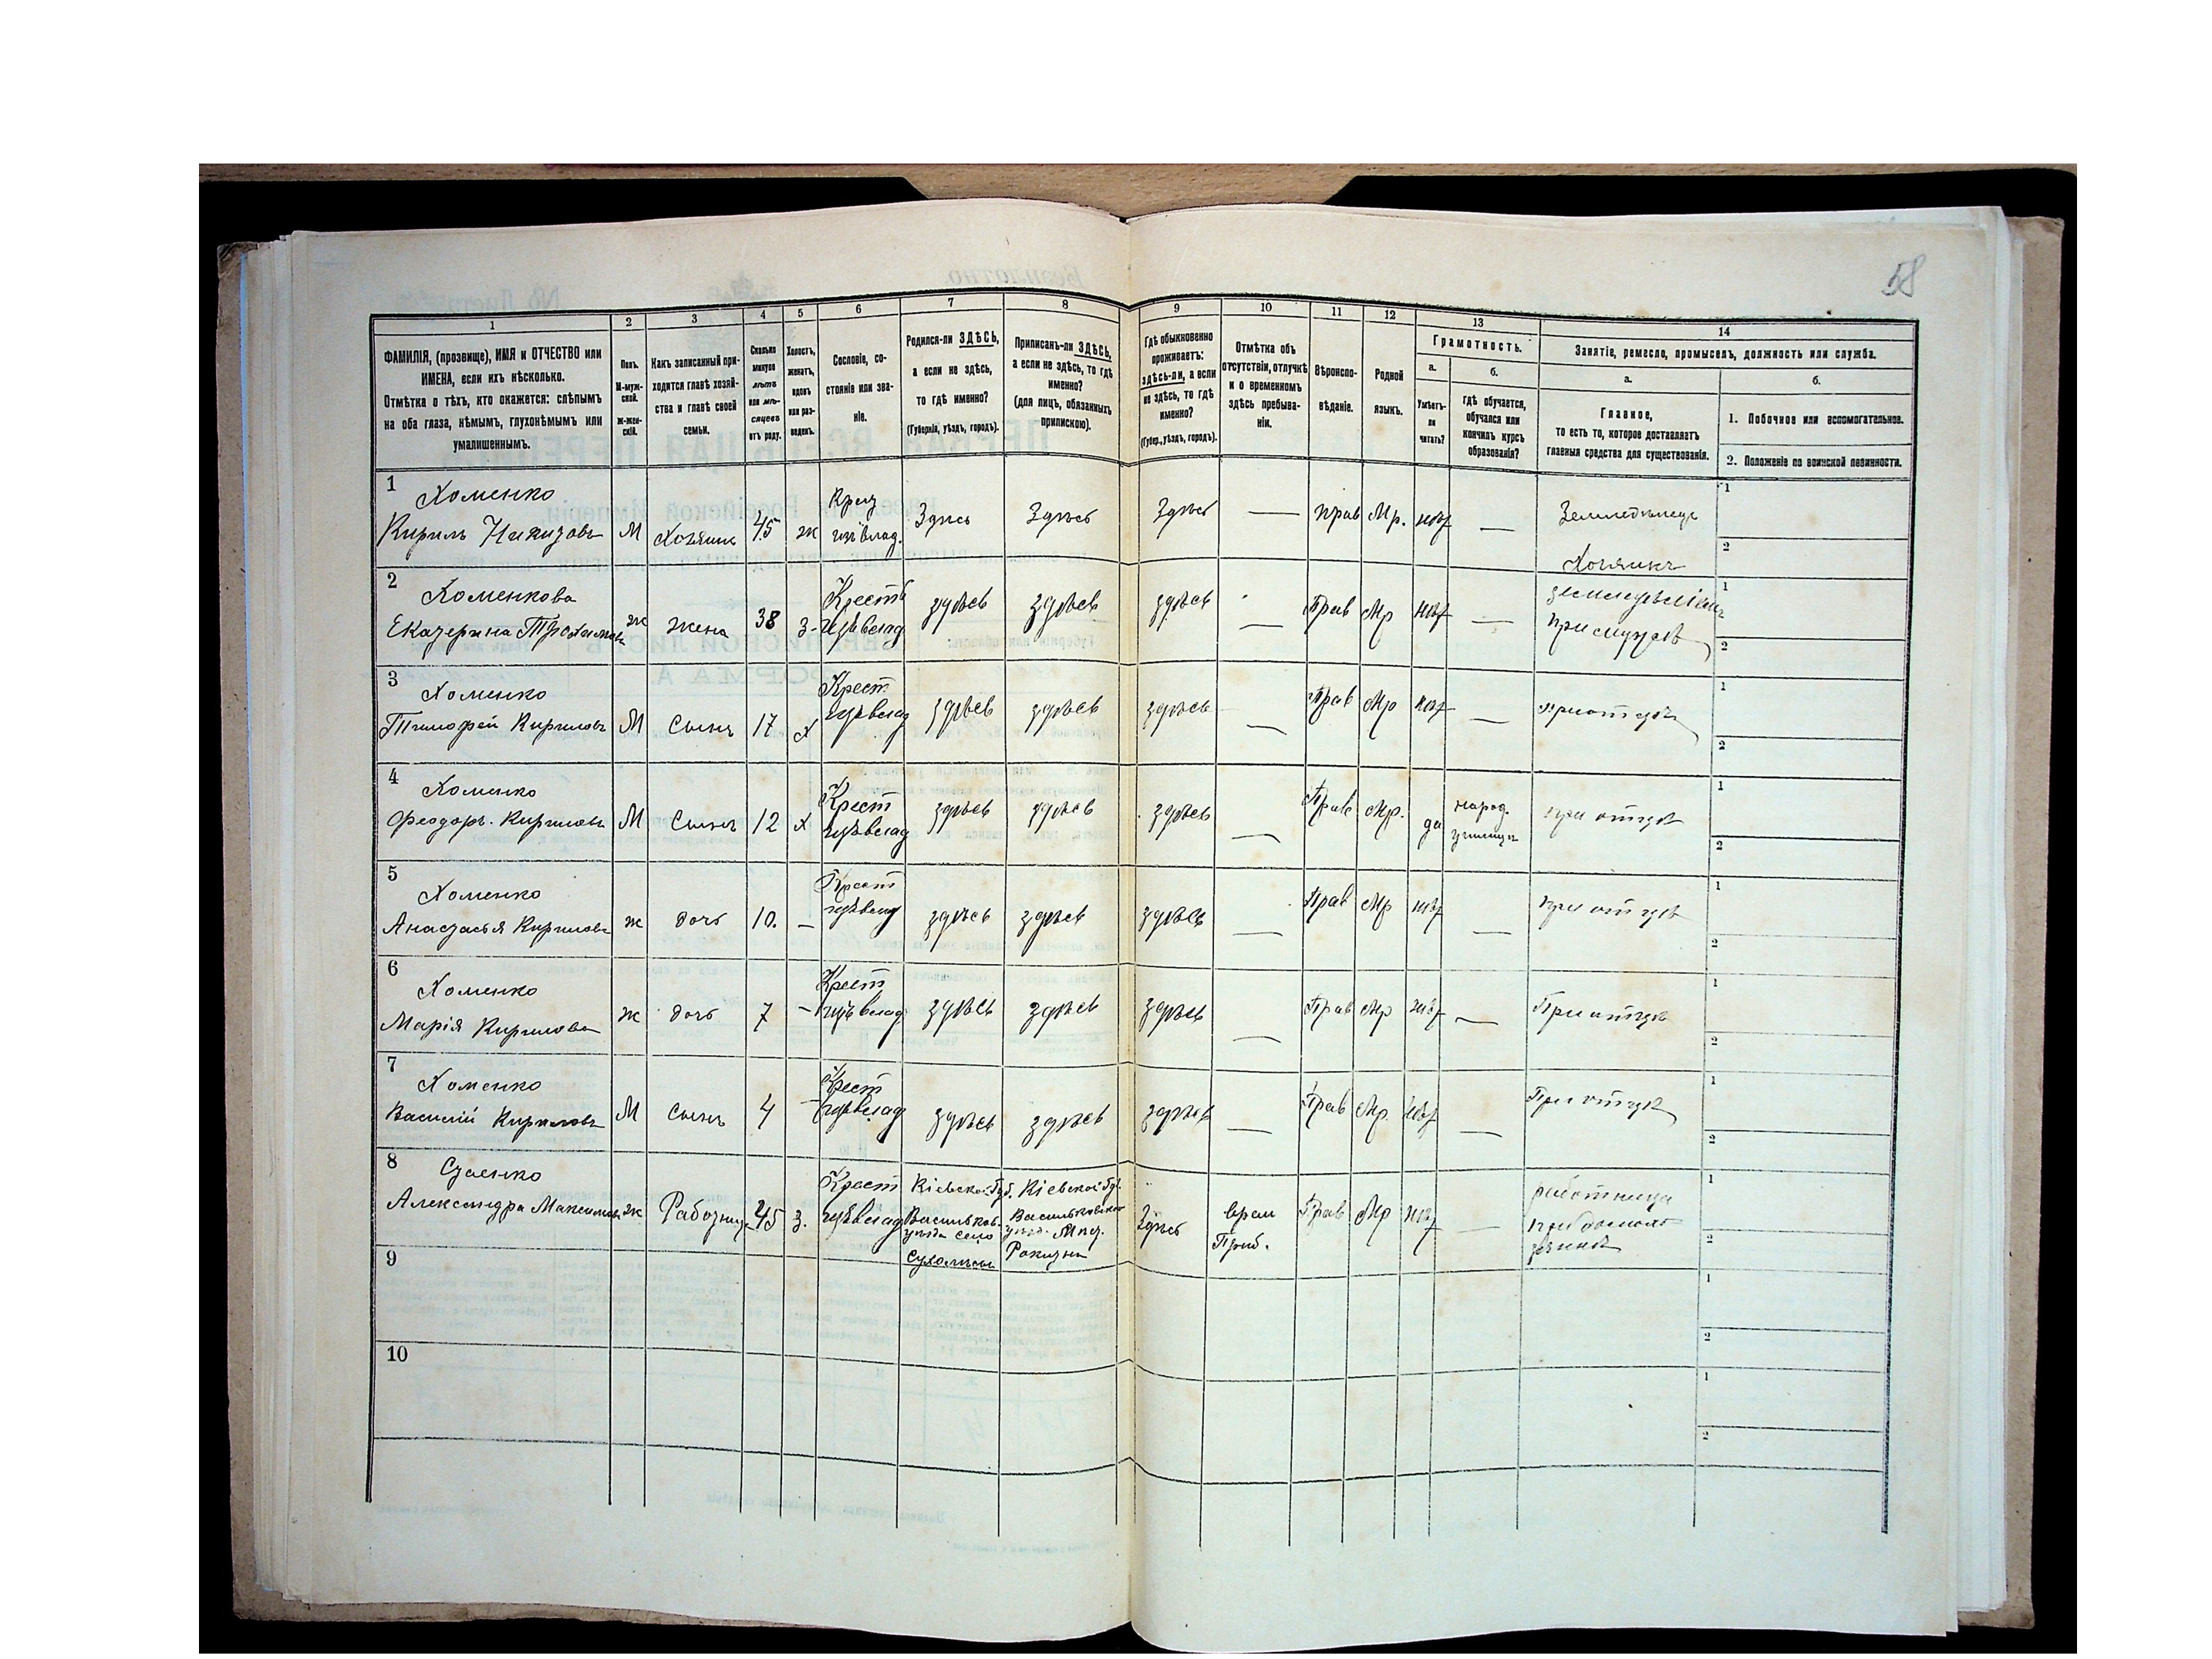 58
1
2
3
4
5
6
7
8
9
10
11
12
13
14
ФАМИЛІЯ, (прозвище), ИМЯ и ОТЧЕСТВО или
ИМЕНА, если ихъ нѣсколько.
Отмѣтка о тѣхъ, кто окажется: слѣпымъ
на оба глаза, нѣмымъ, глухонѣмымъ или
умалишеннымъ.
Полъ.
М-муж-
ской.
Ж-жен-
скій.
Какъ записанный при-
ходится главѣ хозяй-
ства и главѣ своей
семьи.
Сколько
минуло
лѣтъ
или мѣ-
сяцевъ
отъ роду.
Холостъ,
женатъ,
вдовъ
или раз-
веденъ.
Сословіе, со-
стояніе или зва-
ніе.
Родился-ли ЗДѢСЬ,
а если не здѣсь,
то гдѣ именно?
(Губернія, уѣздъ, городъ).
Приписанъ-ли ЗДѢСЬ,
а если не здѣсь, то гдѣ
именно?
(для лицъ, обязанныхъ
припискою).
Гдѣ обыкновенно
проживаетъ:
здѣсь-ли, а если
не здѣсь, то гдѣ
именно?
(Губер., уѣздъ, городъ).
Отмѣтка объ
отсутствіи, отлучкѣ
и о временномъ
здѣсь пребыва-
ніи.
Вѣроиспо-
вѣданіе.
Родной
языкъ.
Грамотность.
а.
Умѣетъ-
ли
читать?
б.
гдѣ обучается,
обучался или
кончилъ курсъ
образованія?
Занятіе, ремесло, промыселъ, должность или служба.
а.
Главное,
то есть то, которое доставляетъ
главныя средства для существованія.
б.
1. Побочное или вспомогательное.
2. Положеніе по воинской повинности.
1 Хоменко
Кирилъ Никитовъ М Хозяинъ 45 ж Крест изъ влад. Здѣсь Здѣсь Здѣсь — прав Мр. нѣт — Земледѣлецъ Хозяинъ 1 2
2 Хоменкова
Екатерина Трохимова ж жена 38 з- Крестъ изъ влад здѣсь здѣсь здѣсь — Прав Мр нѣт — при мужѣ 1 2
3 Хоменко
Тимофей Кириловъ М Сынъ 17 х Крест изъ влад здѣсь здѣсь здѣсь — Прав Мр нѣт — при отцѣ 1 2
4 Хоменко
Феодоръ Кириловъ М Сынъ 12 х Крест изъ влад здѣсь здѣсь здѣсь — Прав Мр. да народ. училищѣ при отцѣ 1 2
5 Хоменко
Анастасья Кирилова ж дочь 10. — Крест изъ влад здѣсь здѣсь здѣсь — Прав Мр нѣт — при отцѣ 1 2
6 Хоменко
Марія Кирилова ж дочь 7 — Крест изъ влад здѣсь здѣсь здѣсь — Прав Мр нѣт — При отцѣ 1 2
7 Хоменко
Василій Кириловъ М Сынъ 4 — Крест изъ влад здѣсь здѣсь здѣсь — Прав Мр. нѣт — При отцѣ 1 2
8
Александра Максимова ж Работница 45 з. Крест изъ влад Кіевской Губ. Васильков. уѣзда село Кіевской Губ. Васильковского уѣзд. Мѣст. Ракитна Здѣсь врем Приб. Прав Мр нѣт — работница при домохозяинѣ 1 2
9 1 2
10 1 2